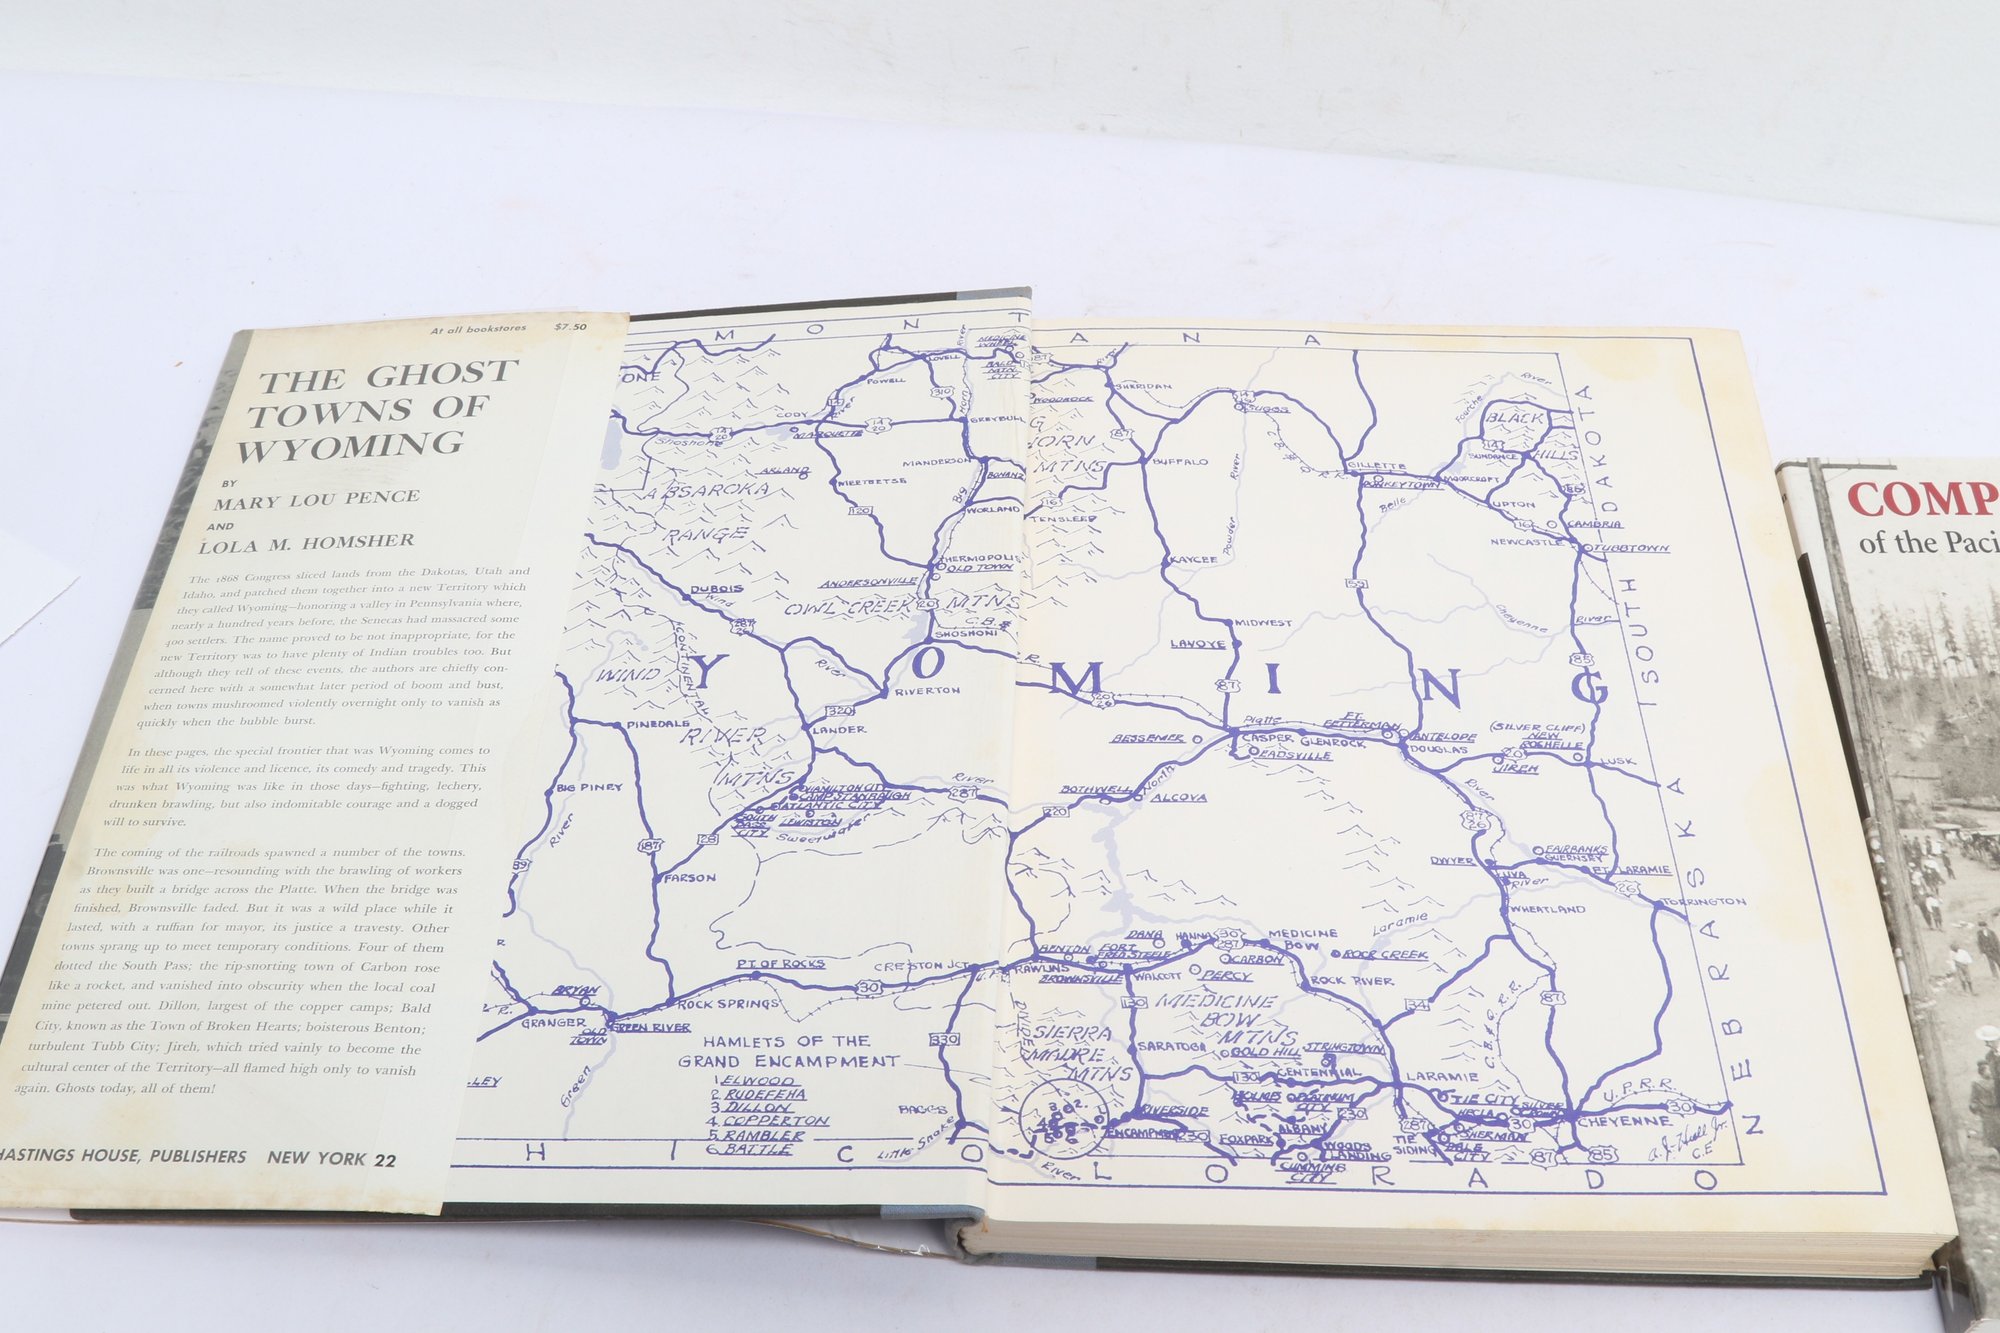 At all bookstores $7.50
THE GHOST
TOWNS OF
WYOMING
BY
MARY LOU PENCE
AND
LOLA M. HOMSHER
The 1868 Congress sliced lands from the Dakotas, Utah and
Idaho, and patched them together into a new Territory which
they called Wyoming—honoring a valley in Pennsylvania where,
nearly a hundred years before, the Senecas had massacred some
400 settlers. The name proved to be not inappropriate, for the
new Territory was to have plenty of Indian troubles too. But
although they tell of these events, the authors are chiefly con-
cerned here with a somewhat later period of boom and bust,
when towns mushroomed violently overnight only to vanish as
quickly when the bubble burst.
In these pages, the special frontier that was Wyoming comes to
life in all its violence and licence, its comedy and tragedy. This
was what Wyoming was like in those days—fighting, lechery,
drunken brawling, but also indomitable courage and a dogged
will to survive.
The coming of the railroads spawned a number of the towns.
Brownsville was one—resounding with the brawling of workers
as they built a bridge across the Platte. When the bridge was
finished, Brownsville faded. But it was a wild place while it
lasted, with a ruffian for mayor, its justice a travesty. Other
towns sprang up to meet temporary conditions. Four of them
dotted the South Pass; the rip-snorting town of Carbon rose
like a rocket, and vanished into obscurity when the local coal
mine petered out. Dillon, largest of the copper camps; Bald
City, known as the Town of Broken Hearts; boisterous Benton;
turbulent Tubb City; Jireh, which tried vainly to become the
cultural center of the Territory—all flamed high only to vanish
again. Ghosts today, all of them!
HASTINGS HOUSE, PUBLISHERS NEW YORK 22
M O N T A N A
ONE
LOVELL
POWELL
CODY
MARQUETTE
GREYBULL
Shoshone
River
ARLAND
MEETEETSE
MANDERSON
WORLAND
ABSAROKA
RANGE
120
THERMOPOLIS
OLD TOWN
ANDERSONVILLE
DUBOIS
Wind
OWL CREEK MTNS
20
SHOSHONI
C.B.&
CONTINENTAL
WIND
RIVER
MTNS
River
RIVERTON
320
LANDER
PINEDALE
BIG PINEY
River
187
89
28
FARSON
HAMILTON CITY
CAMP STANBAUGH
ATLANTIC CITY
SOUTH
PASS
CITY
LEWISTON
Sweetwater
River
287
PT OF ROCKS
CRESTON JCT
BRYAN
GRANGER
OLD
TOWN
GREEN RIVER
ROCK SPRINGS
30
Green
LEY
330
BAGGS
Little Snake
HAMLETS OF THE
GRAND ENCAMPMENT
1 ELWOOD
2 RUDEFEHA
3 DILLON
4 COPPERTON
5 RAMBLER
6 BATTLE
Y O M I N G
MEDICINE
WHEEL
BALD
MTN.
CITY
WOODROCK
SHERIDAN
SUGGS
87
BUFFALO
G
HORN
MTNS
16
TENSLEEP
KAYCEE
Powder
River
MIDWEST
LAVOYE
GILLETTE
DONKEYTOWN
MOORCROFT
Belle
Fourche
River
BLACK
HILLS
SUNDANCE
14
UPTON
16
CAMBRIA
NEWCASTLE
TUBBTOWN
Cheyenne
River
85
SOUTH DAKOTA
Platte
CASPER
GLENROCK
EADSVILLE
BESSEMER
FT.
FETTERMAN
ANTELOPE
DOUGLAS
(SILVER CLIFF)
NEW
ROCHELLE
JIREH
20
LUSK
BOTHWELL
ALCOVA
North
220
River
87
26
DWYER
FAIRBANKS
GUERNSEY
FT. LARAMIE
UVA
River
26
TORRINGTON
WHEATLAND
Laramie
NEBRASKA
BENTON
FORT
FRED STEELE
DANA
HANNA
30
287
MEDICINE
BOW
RAWLINS
BROWNSVILLE
WALCOTT
CARBON
PERCY
ROCK CREEK
ROCK RIVER
130
MEDICINE
BOW
MTNS
34
87
C.B.&Q.R.R.
DIVIDE
SIERRA
MADRE
MTNS
SARATOGA
GOLD HILL
STRINGTOWN
130
CENTENNIAL
LARAMIE
HOLMES
PLATINUM
CITY
230
TIE CITY
HECLA
SILVER
CROWN
U.P.R.R.
30
RIVERSIDE
ENCAMPMENT
230
FOXPARK
ALBANY
WOODS
LANDING
CUMMINS
CITY
287
TIE
SIDING
SHERMAN
DALE
CITY
30
CHEYENNE
87
85
River
A.J. Hull Jr.
C.E
H I C O L O R A D O
COMP
of the Paci